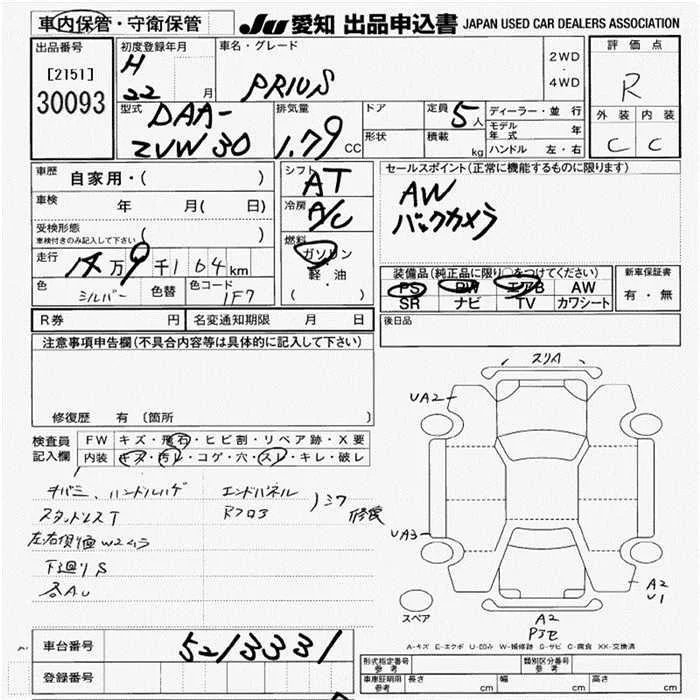 車内保管・守衛保管
JU 愛知 出品申込書 JAPAN USED CAR DEALERS ASSOCIATION
出品番号
[2151]
30093
初度登録年月
H
22 月
車名・グレード
PRIUS
2WD
・
4WD
評価点
R
外装 内装
C C
型式
DAA-
ZVW30
排気量
1.79 CC
ドア
形状
定員 5 人
積載 kg
ディーラー・並行
モデル年式 年
ハンドル 左・右
車歴
自家用・( )
車検
年 月( 日)
受検形態
車検付きのみ記入して下さい ( )
走行
万 9 千 164 km
色
シルバー
色替
色コード
1F7
シフト
AT
冷房
A/C
燃料
ガソリン
軽油
( )
セールスポイント(正常に機能するものに限ります)
AW
バックカメラ
装備品(純正品に限り○をつけてください)
PS PW エアB AW
SR ナビ TV カワシート
新車保証書
有・無
R券 円
名変通知期限 月 日
後日品
注意事項申告欄(不具合内容等は具体的に記入して下さい)
修復歴 有 〔箇所 〕
検査員
記入欄
FW キズ・飛石・ヒビ割・リペア跡・X要
内装 キズ・汚レ・コゲ・穴・スレ・キレ・破レ
ハンドルハゲ
エンドパネル
シワ
修復
下廻りS
スリム
UA2
UA3
A2
U1
A2
スペア
A-キズ E-エクボ U-凹み W-補修跡 S-サビ C-腐食 XX-交換済
車台番号
5213331
登録番号
形式指定番号
参考
類別区分番号
参考
車庫証明用
参考
長さ cm
幅 cm
高さ cm